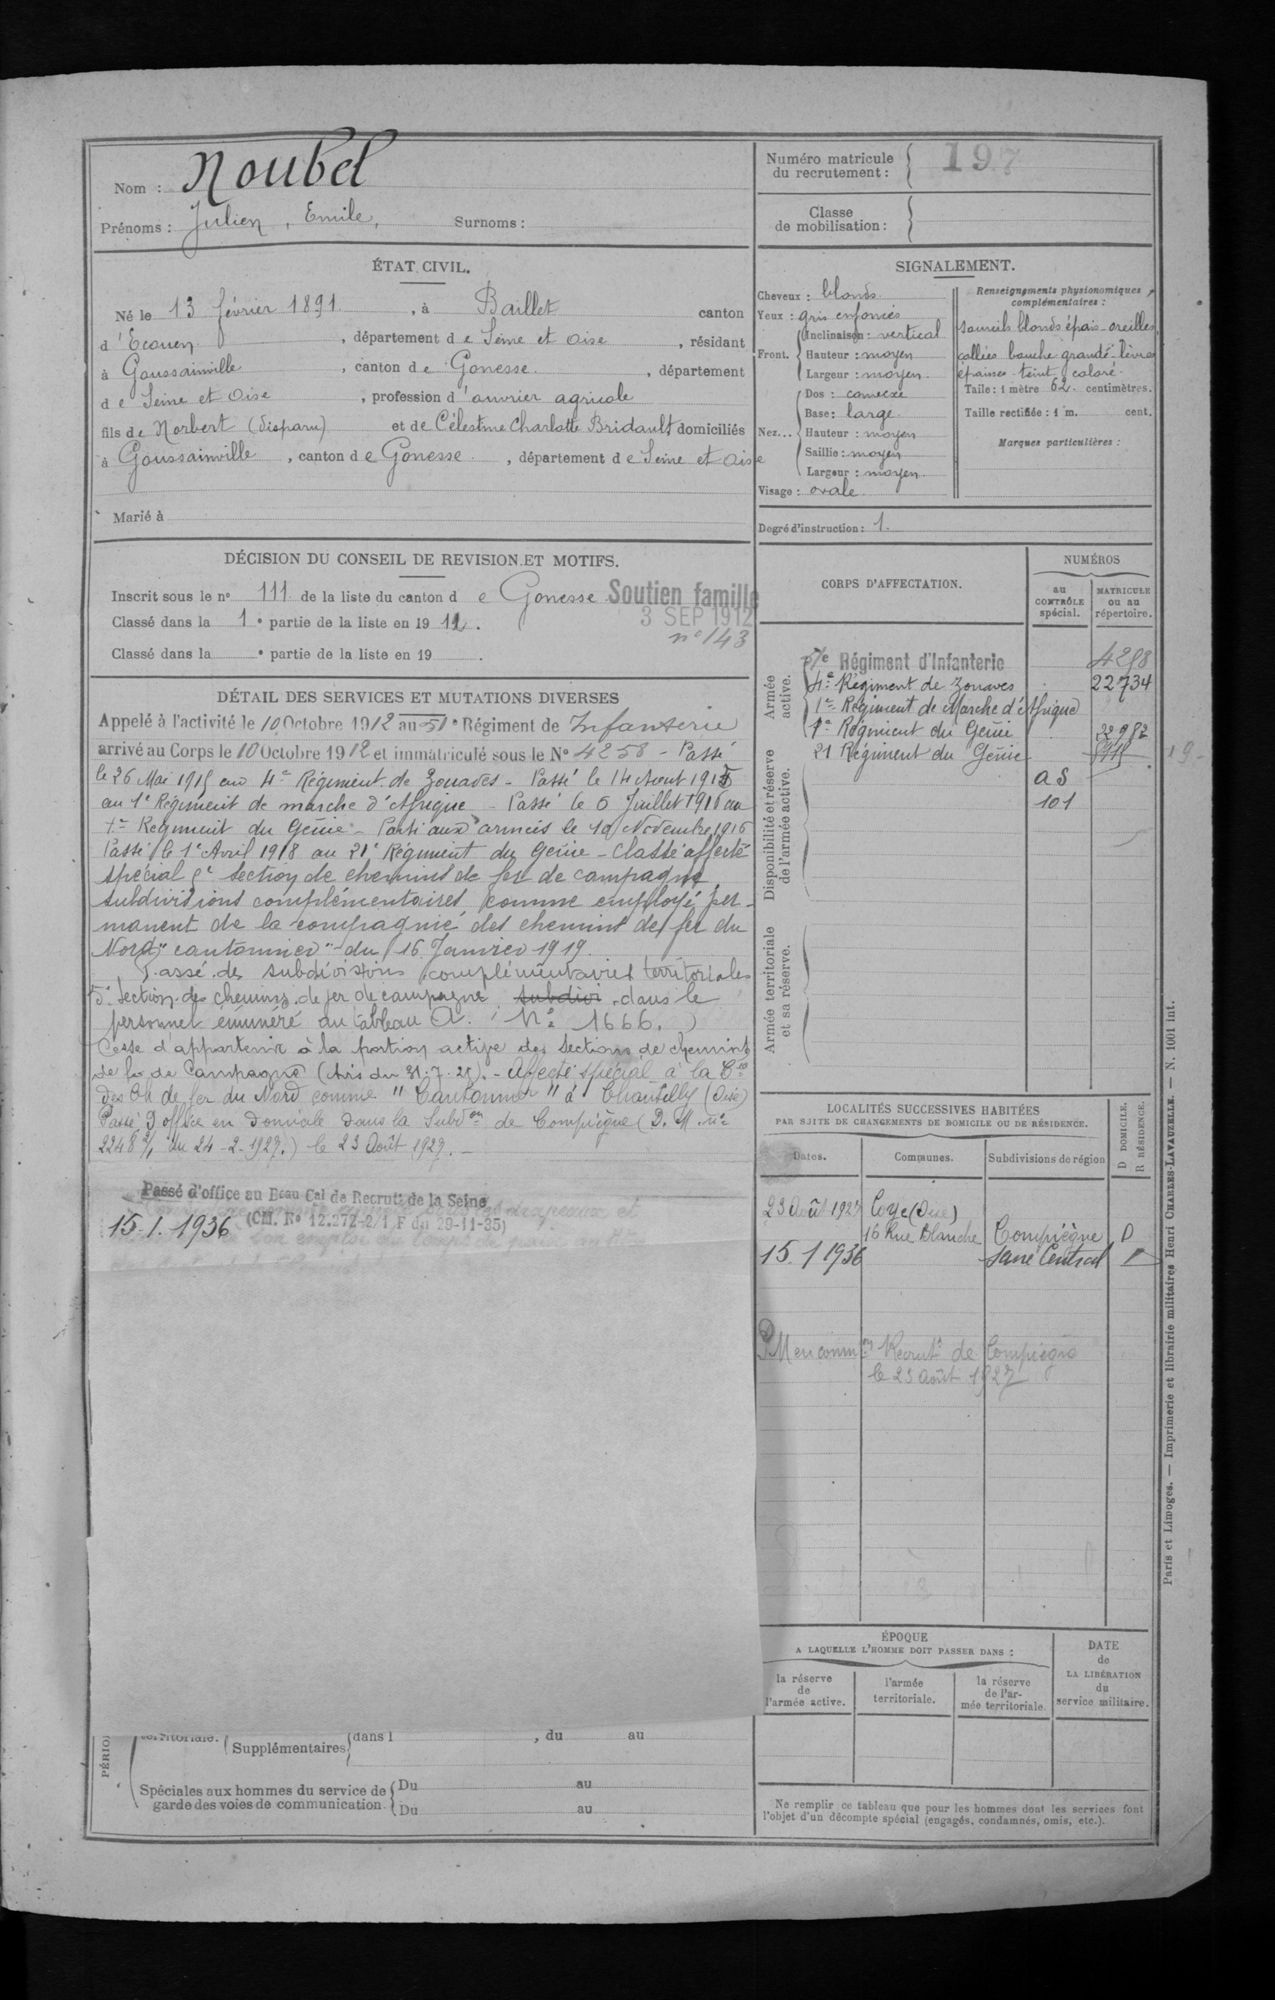 Nom : Noubel
Prénoms : Julien, Emile, Surnoms :
Numéro matricule du recrutement : 197
Classe de mobilisation :
ÉTAT CIVIL.
Né le 13 février 1891, à Baillet canton
d'Ecouen, département de Seine et Oise, résidant
à Goussainville, canton de Gonesse, département
de Seine et Oise, profession d'ouvrier agricole
fils de Norbert (disparu) et de Célestine Charlotte Bridault domiciliés
à Goussainville, canton de Gonesse, département de Seine et Oise
Marié à
SIGNALEMENT.
Cheveux : blonds
Yeux : gris enfoncés
Front. Inclinaison : vertical
Hauteur : moyen
Largeur : moyen
Nez... Dos : convexe
Base : large
Hauteur : moyen
Saillie : moyen
Largeur : moyen
Visage : ovale
Renseignements physionomiques complémentaires :
sourcils blonds épais - oreilles
collées bouche grande - lèvres
épaisses - teint coloré
Taille : 1 mètre 62 centimètres.
Taille rectifiée : 1 m. cent.
Marques particulières :
Degré d'instruction : 1.
DÉCISION DU CONSEIL DE REVISION ET MOTIFS.
Inscrit sous le n° 111 de la liste du canton de Gonesse
Classé dans la 1e partie de la liste en 1912.
Classé dans la e partie de la liste en 19 .
Soutien famille
3 SEP 1912
n° 143
DÉTAIL DES SERVICES ET MUTATIONS DIVERSES
Appelé à l'activité le 10 Octobre 1912 au 51e Régiment de Infanterie
arrivé au Corps le 10 Octobre 1912 et immatriculé sous le N° 4258 - Passé
le 26 Mai 1915 au 4e Régiment de Zouaves - Passé le 14 Aout 1915
au 1e Régiment de marche d'Afrique - Passé le 6 Juillet 1916 au
1er Régiment du Génie - Parti aux armées le 10 Novembre 1916
Passé le 1e Avril 1918 au 21e Régiment du Génie - Classé affecté
spécial 5e section de chemins de fer de campagne
subdivisions complémentaires comme employé per-
manent de la compagnie des chemins de fer du
Nord "cantonnier" du 16 Janvier 1919.
Passé des subdivisions complémentaires territoriales
5e Section des chemins de fer de campagne, subdivi dans le
personnel énuméré au tableau A. (N° 1666.)
Cesse d'appartenir à la portion active des sections de chemins
de fer de Campagne (Avis du 31.7.25). - Affecté spécial à la Cie
des Ch de fer du Nord comme "Cantonnier" à Chantilly (Oise)
Passé d'office en Domicile dans la Subdon de Compiègne (D. M. n°
2248 2/1 du 24-2-1927.) le 23 Août 1927.
Passé d'office au Beau Cal de Recrut. de la Seine
15.1.1936 (CM. N° 12.272-2/1, F du 29-11-35)
CORPS D'AFFECTATION.
NUMÉROS
au CONTRÔLE spécial.
MATRICULE ou au répertoire.
Armée active.
Régiment d'Infanterie 4258
4e Régiment de Zouaves 22734
1er Régiment de Marche d'Afrique
1e Régiment du Génie
21 Régiment du Génie
Disponibilité et réserve de l'armée active.
AS
101
Armée territoriale et sa réserve.
LOCALITÉS SUCCESSIVES HABITÉES
PAR SUITE DE CHANGEMENTS DE DOMICILE OU DE RÉSIDENCE.
D DOMICILE.
R RÉSIDENCE.
Dates. Communes. Subdivisions de région
23 Août 1927 Coye (Oise)
16 Rue Blanche Compiègne D
15.1 1936 Seine Central D
Recrutt de Compiègne
le 23 Août 1927
ÉPOQUE
A LAQUELLE L'HOMME DOIT PASSER DANS :
la réserve de l'armée active.
l'armée territoriale.
la réserve de l'armée territoriale.
DATE de LA LIBÉRATION du service militaire.
territoriale. Supplémentaires dans l , du au
Spéciales aux hommes du service de garde des voies de communication. Du au
Du au
Ne remplir ce tableau que pour les hommes dont les services font
l'objet d'un décompte spécial (engagés, condamnés, omis, etc.).
Paris et Limoges. — Imprimerie et librairie militaires Henri CHARLES-LAVAUZELLE. — N. 1001 int.